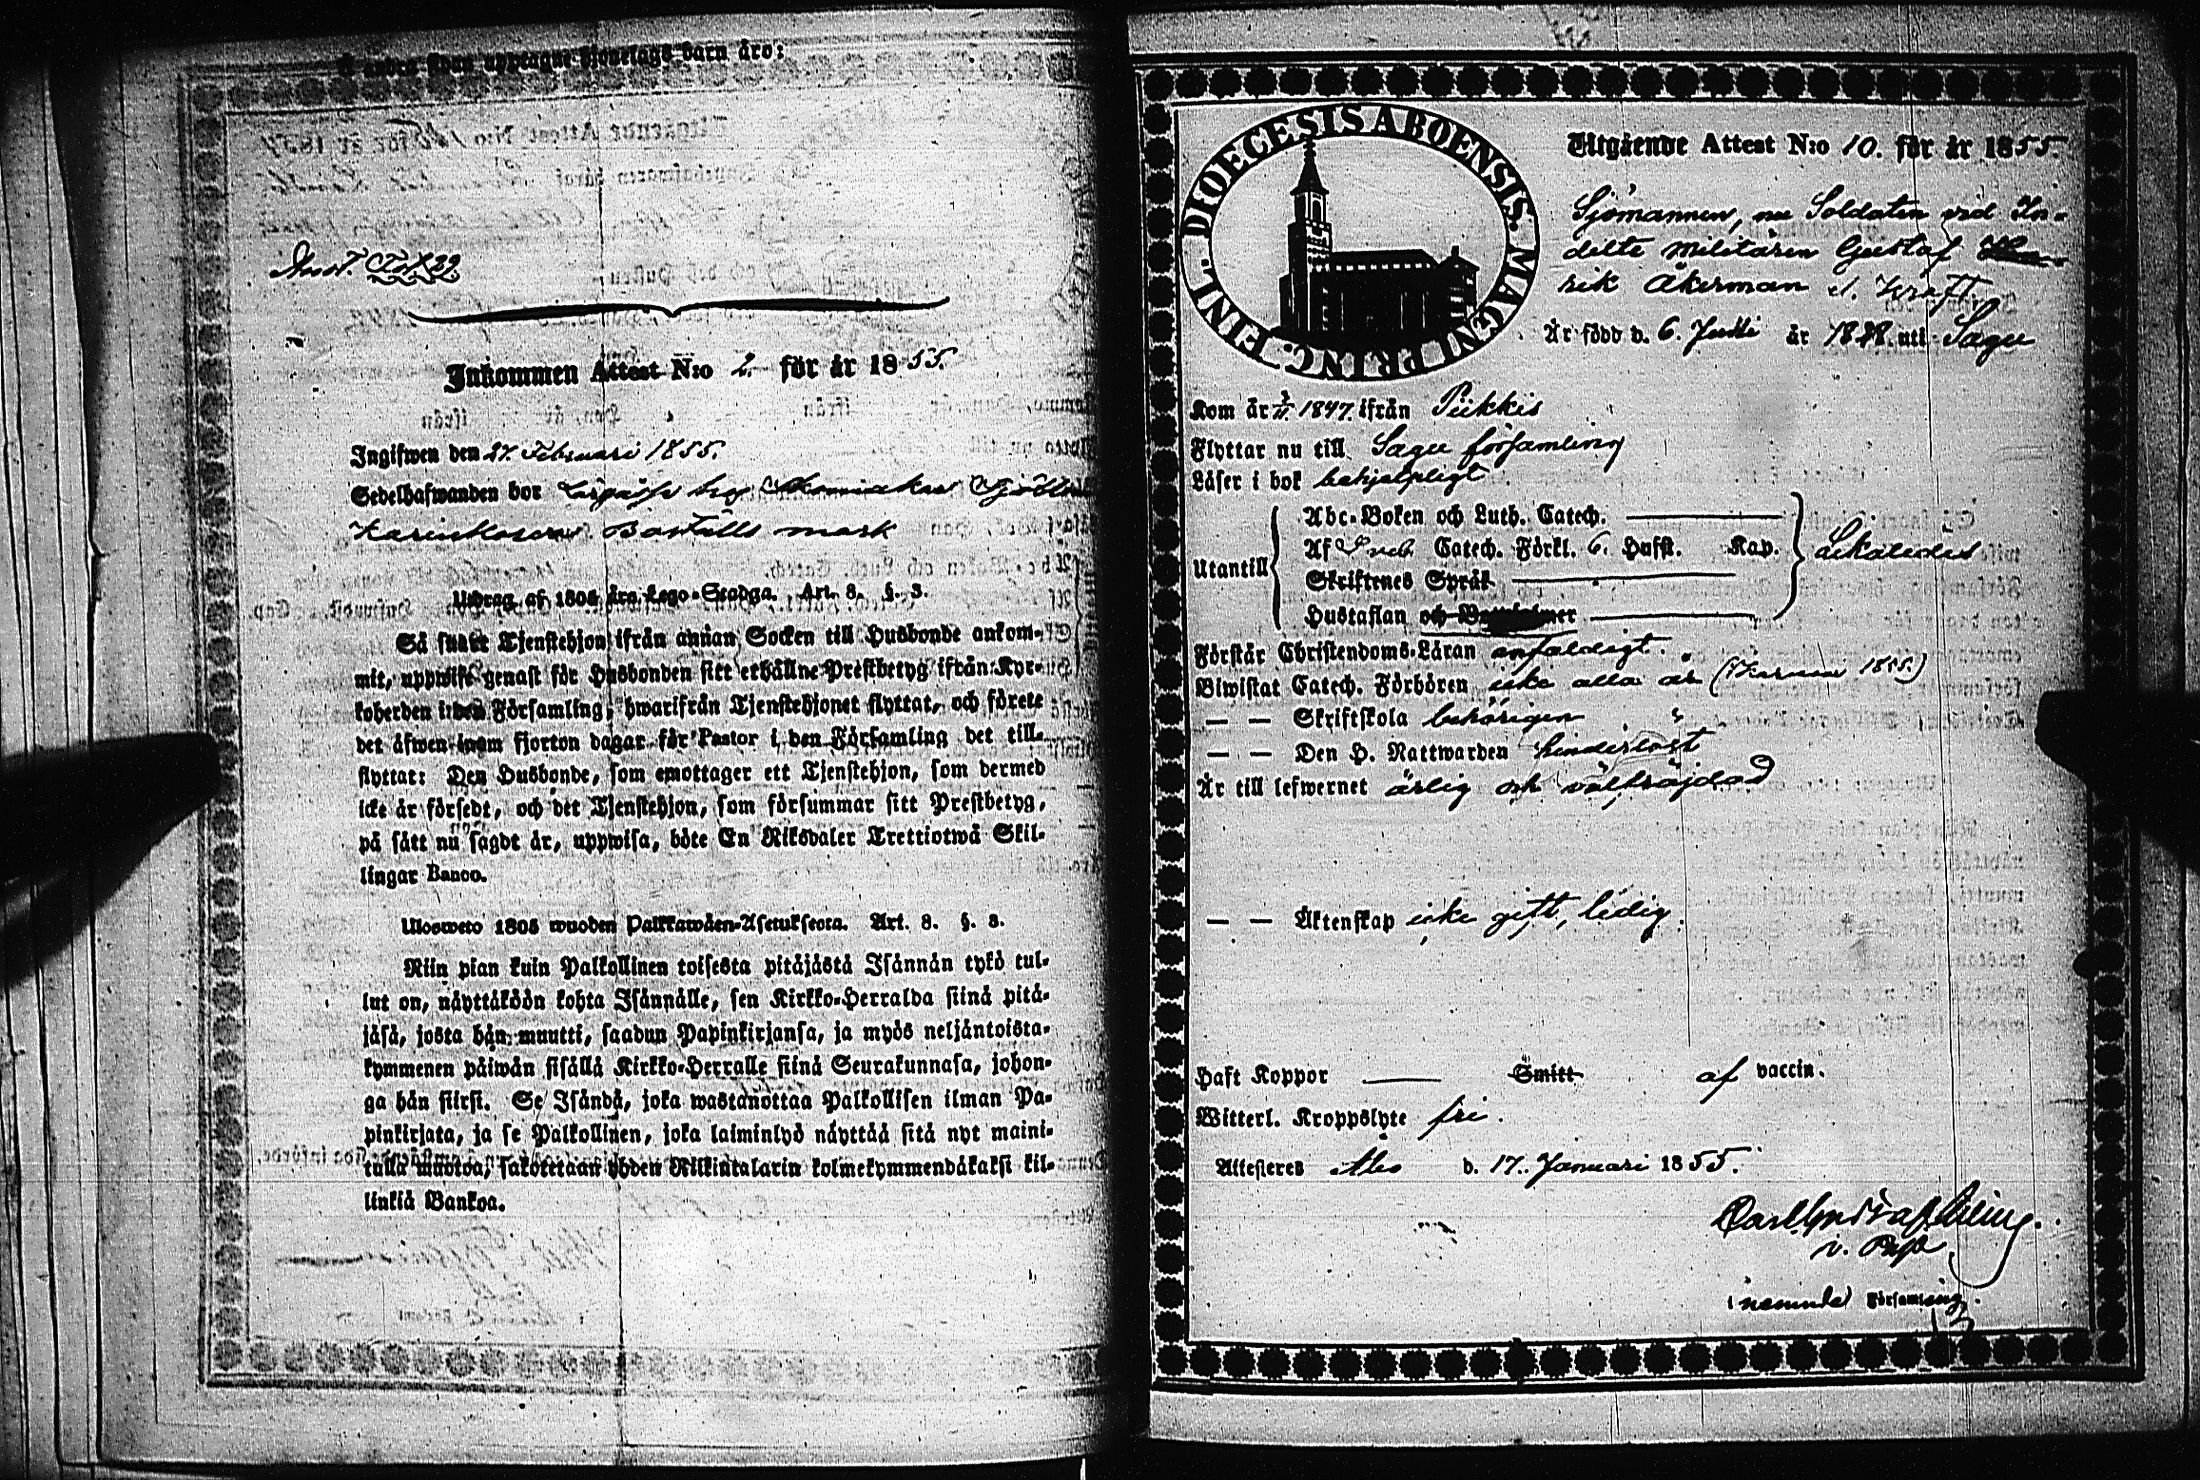 å andra sidan upptagne hjonelags barn äro:
Annot. Fol. 39.
Inkommen Attest N:o 2. för år 1855.
Ingifwen den 27. Februari 1855.
Sedelhafwanden bor
mark
Utdrag af 1805 års Lego-Stadga. Art. 8. §. 3.
Så snart Tjenstehjon ifrån annan Socken till Husbonde ankom-
mit, uppwise genast för Husbonden sitt erhållne Prestbetyg ifrån Kyr-
koherden i den Församling, hwarifrån Tjenstehjonet flyttat, och förete
det äfwen inom fjorton dagar för Pastor i den Församling det till-
flyttat: Den Husbonde, som emottager ett Tjenstehjon, som dermed
icke är försedt, och det Tjenstehjon, som försummar sitt Prestbetyg,
på sätt nu sagdt är, uppwisa, böte En Riksdaler Trettiotwå Skil-
lingar Banco.
Uloswеto 1805 wuoden Palkkawäen-Asetuksesta. Art. 8. §. 3.
Niin pian kuin Palkollinen toisesta pitäjästä Isännän tykö tul-
lut on, näyttäköön kohta Isännälle, sen Kirkko-Herralda siinä pitä-
jäsä, josta hän muutti, saadun Papinkirjansa, ja myös neljäntoista-
kymmenen päiwän sisällä Kirkko-Herralle siinä Seurakunnasa, johon-
ga hän siirsi. Se Isändä, joka wastanottaa Palkollisen ilman Pa-
pinkirjata, ja se Palkollinen, joka laiminlyö näyttää sitä nyt maini-
tulla muotoa, sakotetaan yhden Riikintalarin kolmekymmendäkaksi kil-
linkiä Bankoa.
DIOECESIS ABOENSIS. MAGNI PRINC. FINL.
Utgående Attest N:o 10. för år 1855.
Sjömannen, nu Soldaten vid In-
delte militären Gustaf Hen-
rik Åkerman
Är född d. 6. år 18 uti Sagu
Kom år 1847. ifrån Piikkis
Flyttar nu till Sagu församling
Läser i bok behjelpligt
Utantill
Abc-Boken och Luth. Catech.
Af Sveb. Catech. Förkl. 6. Hufst. Kap.
Skriftenes Språk
Hustaflan och
Likaledes
Förstår Christendoms-Läran enfaldigt.
Biwistat Catech. Förhören icke alla år
— — Skriftskola behörigen
— — Den H. Nattwarden hinderlöst
Är till lefwernet ärlig och välfräjdad
— — Äktenskap icke gift, ledig.
Haft Koppor — Smitt af vaccin.
Witterl. Kroppslyte fri.
Attesteras Åbo d. 17. Januari 1855.
i nämnde Församling.